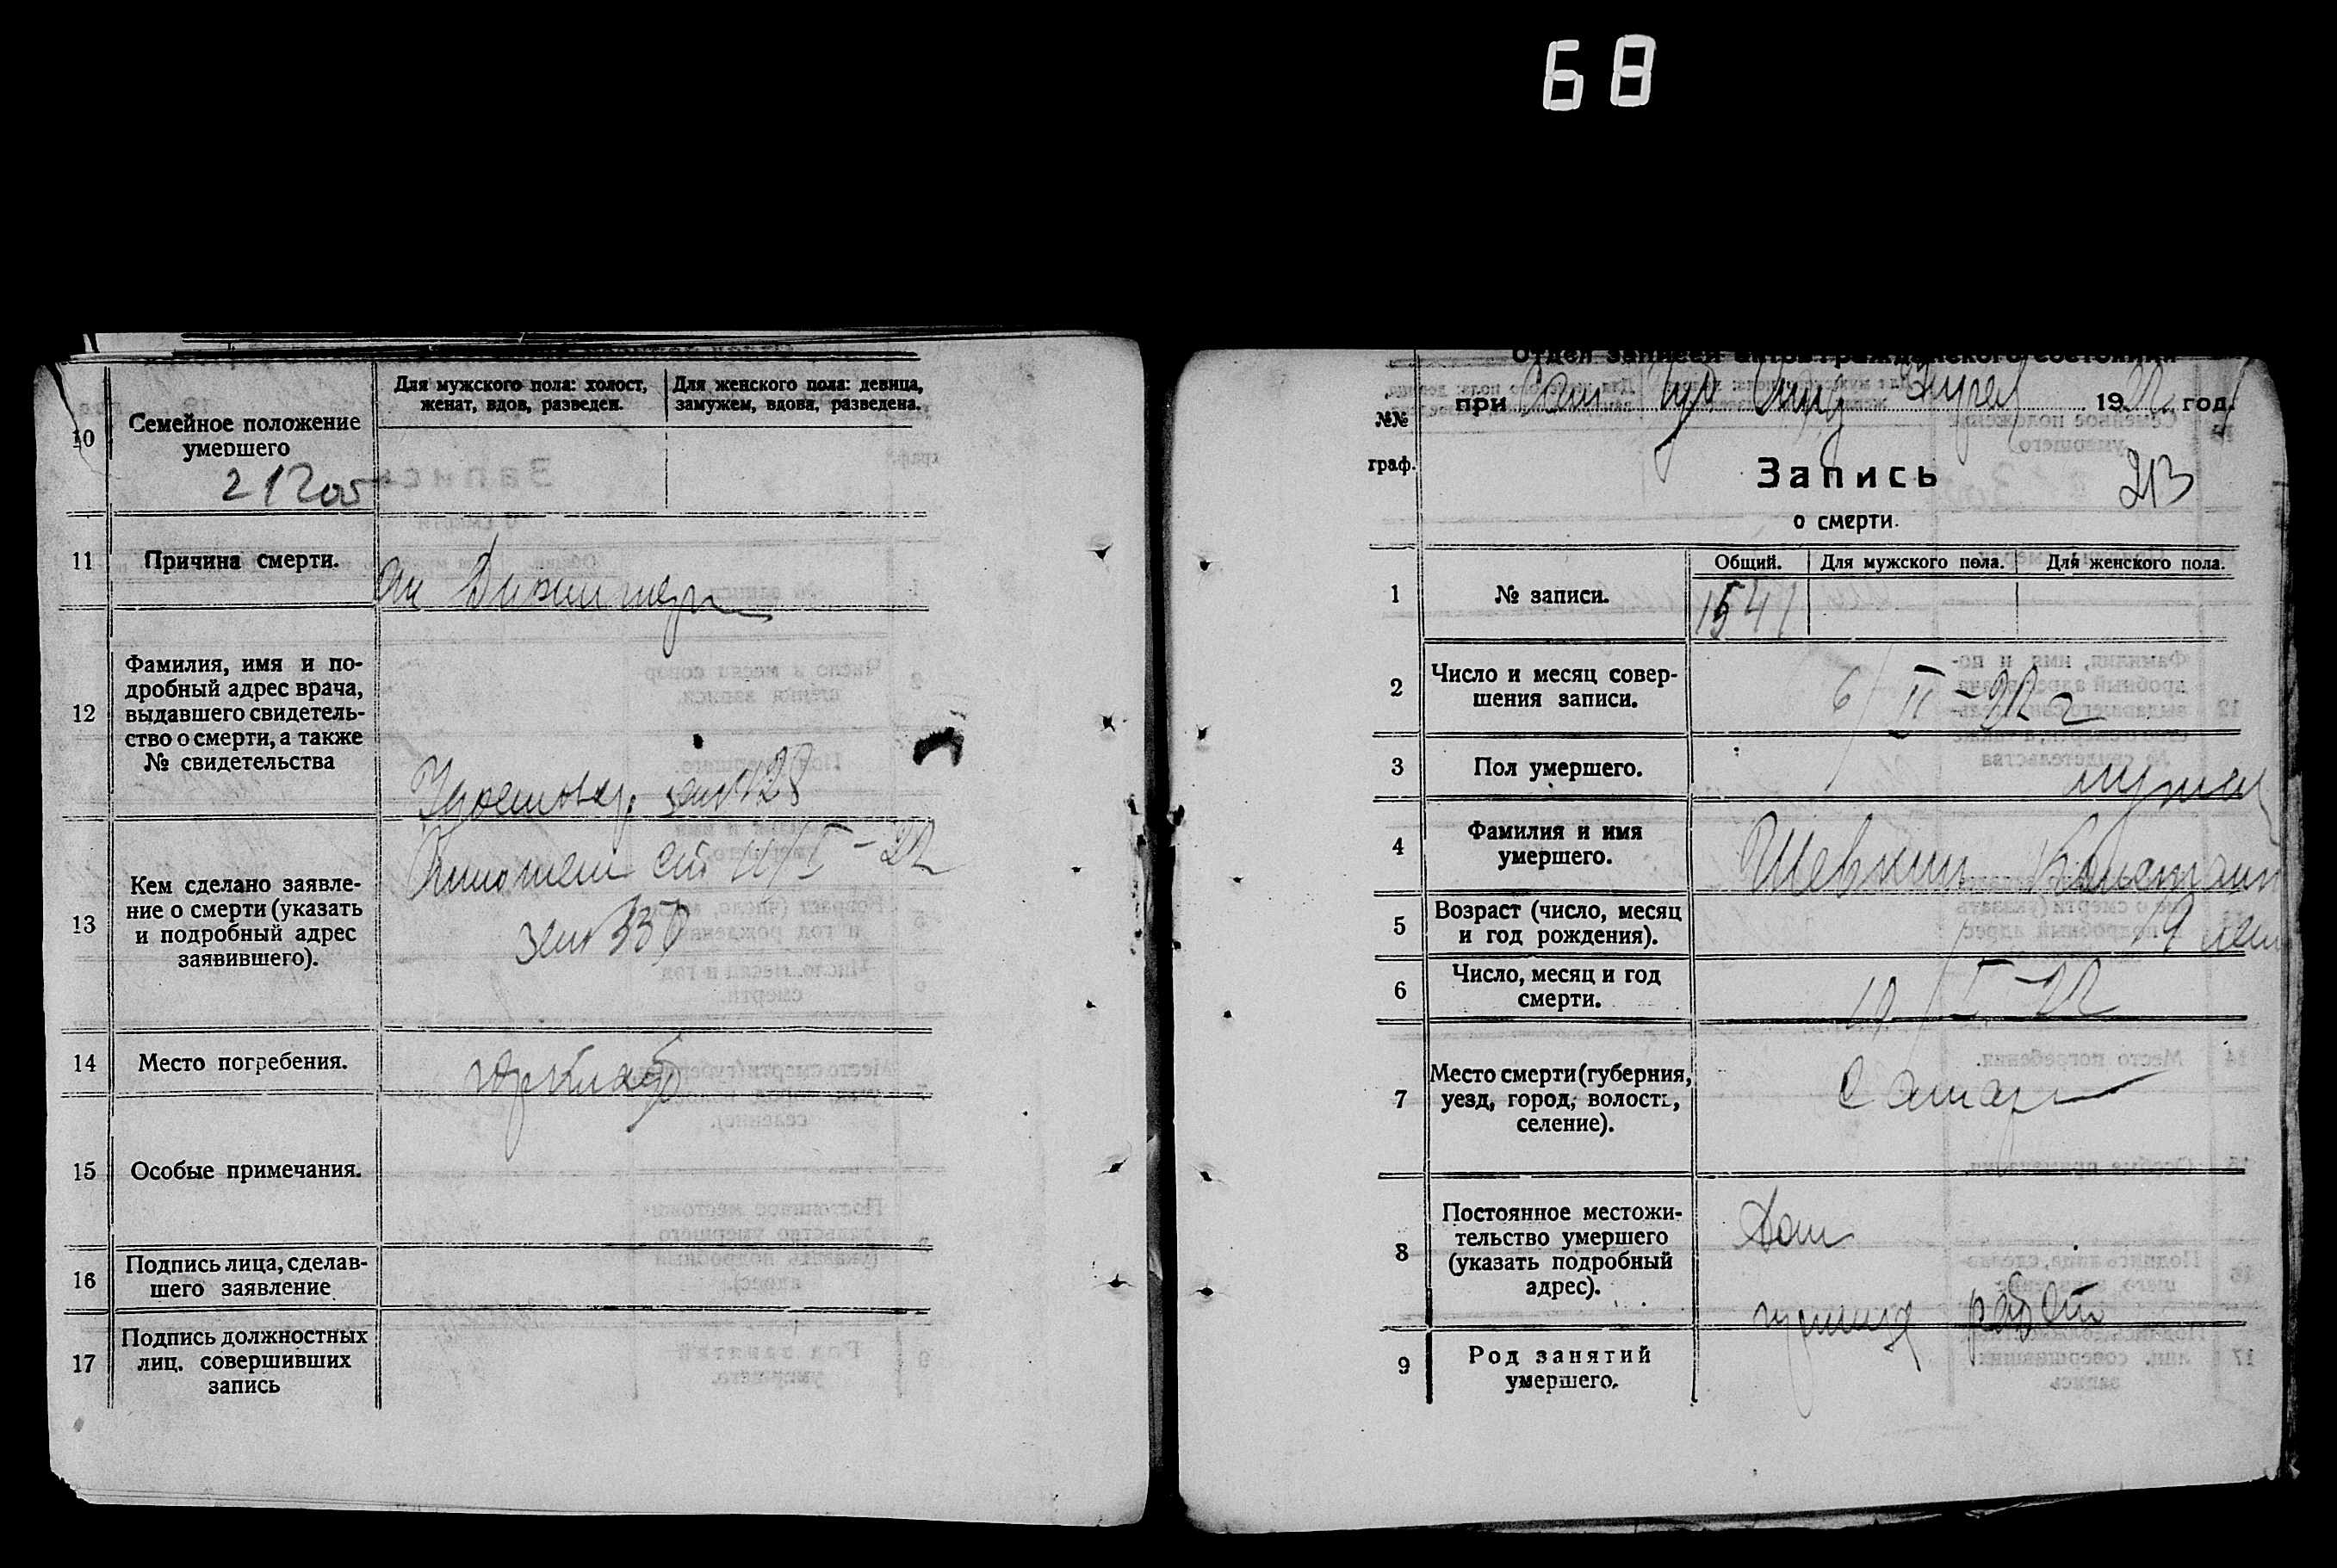 68
10
Семейное положение
умершего
21205
Для мужского пола: холост,
женат, вдов, разведен.
Для женского пола: девица,
замужем, вдова, разведена.
11
Причина смерти.
12
Фамилия, имя и по-
дробный адрес врача,
выдавшего свидетель-
ство о смерти, а также
№ свидетельства
128
13
Кем сделано заявле-
ние о смерти (указать
и подробный адрес
заявившего).
14
Место погребения.
15
Особые примечания.
16
Подпись лица, сделав-
шего заявление
17
Подпись должностных
лиц. совершивших
запись
Отдел записей актов гражданского состояния
при 1922 год.
№№
граф.
Запись
213
о смерти.
1
№ записи.
Общий.
Для мужского пола.
Для женского пола.
1541
2
Число и месяц совер-
шения записи.
6/II-22 г
3
Пол умершего.
мужск
4
Фамилия и имя
умершего.
Шевкин Константин
5
Возраст (число, месяц
и год рождения).
19 лет
6
Число, месяц и год
смерти.
10/I-22
7
Место смерти (губерния,
уезд, город, волость,
селение).
Самара
8
Постоянное местожи-
тельство умершего
(указать подробный
адрес).
9
Род занятий
умершего.